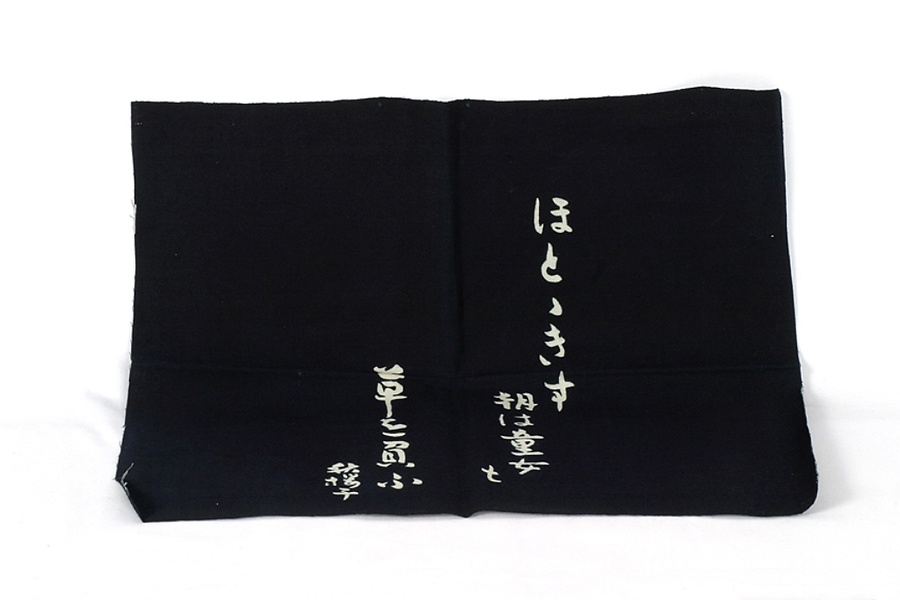 ほとゝきす
朝は童女
も
草を負ふ
秋櫻子